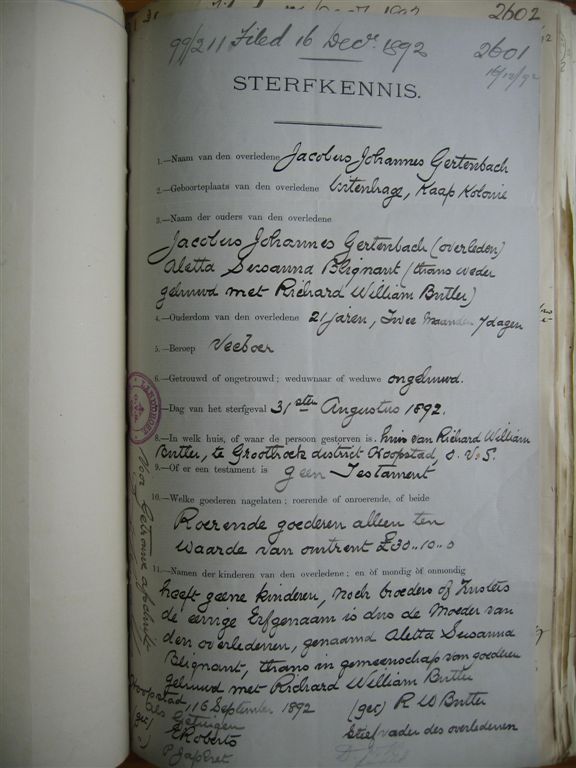 2602
99/211 Filed 16 Decr. 1892 2601
16/12/92
STERFKENNIS.
1.—Naam van den overledene Jacobus Johannes Gertenbach
2.—Geboorteplaats van den overledene Uitenhage, Kaap Kolonie
3.—Naam der ouders van den overledene
Jacobus Johannes Gertenbach (overleden)
Aletta Susanna Blignaut (thans weder
gehuwd met Richard William Butler)
4.—Ouderdom van den overledene 21 jaren, Twee Maanden 7 dagen
5.—Beroep Veeboer
6.—Getrouwd of ongetrouwd; weduwnaar of weduwe ongehuwd.
—Dag van het sterfgeval 31sten Augustus 1892.
8.—In welk huis, of waar de persoon gestorven is. huis van Richard William
Butler, te Groothoek district Hoopstad, O.V.S.
9.—Of er een testament is Geen Testament
10.—Welke goederen nagelaten; roerende of onroerende, of beide
Roerende goederen alleen ten
waarde van omtrent £30..10..0
11.—Namen der kinderen van den overledene; en òf mondig òf onmondig
heeft geene kinderen, noch broeders of Zusters
de eenige Erfgenaam is dus de Moeder van
den overledenen, genaamd Aletta Susanna
Blignaut, thans in gemeenschap van goederen
gehuwd met Richard William Butler
Hoopstad, 16 September 1892 (get) R W Butler
Als Getuigen Stiefvader des overledenen
(get) E Roberts
P Japhet
Voor Getrouwe afschrift
LANDDROST